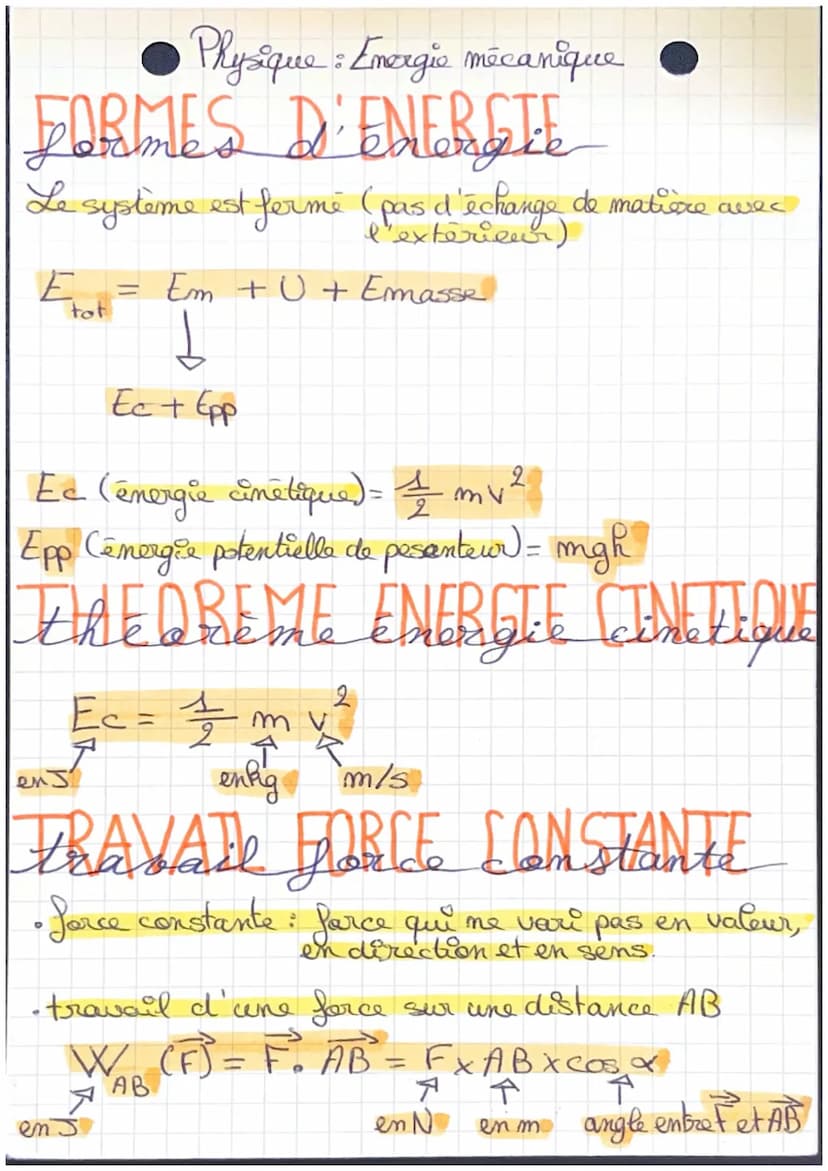 Physique : Energie mécanique
FORMES D'ENERGIE
formes d'énergie
Le système est fermé (pas d'échange de matière avec
l'extérieur)
E tot = Em + U + Emasse
Ec + Epp
Ec (énergie cinétique) = 1/2 mv²
Epp (énergie potentielle de pesanteur) = mgh
THEOREME ENERGIE CINETIQUE
théorème énergie cinetique
Ec = 1/2 m v²
en J en kg m/s
TRAVAIL FORCE CONSTANTE
travail force constante
• force constante : force qui ne vari pas en valeur,
en direction et en sens.
• travail d'une force sur une distance AB
W AB (F⃗) = F⃗ . AB⃗ = F x AB x cos α
en J en N en m angle entre F⃗ et AB⃗